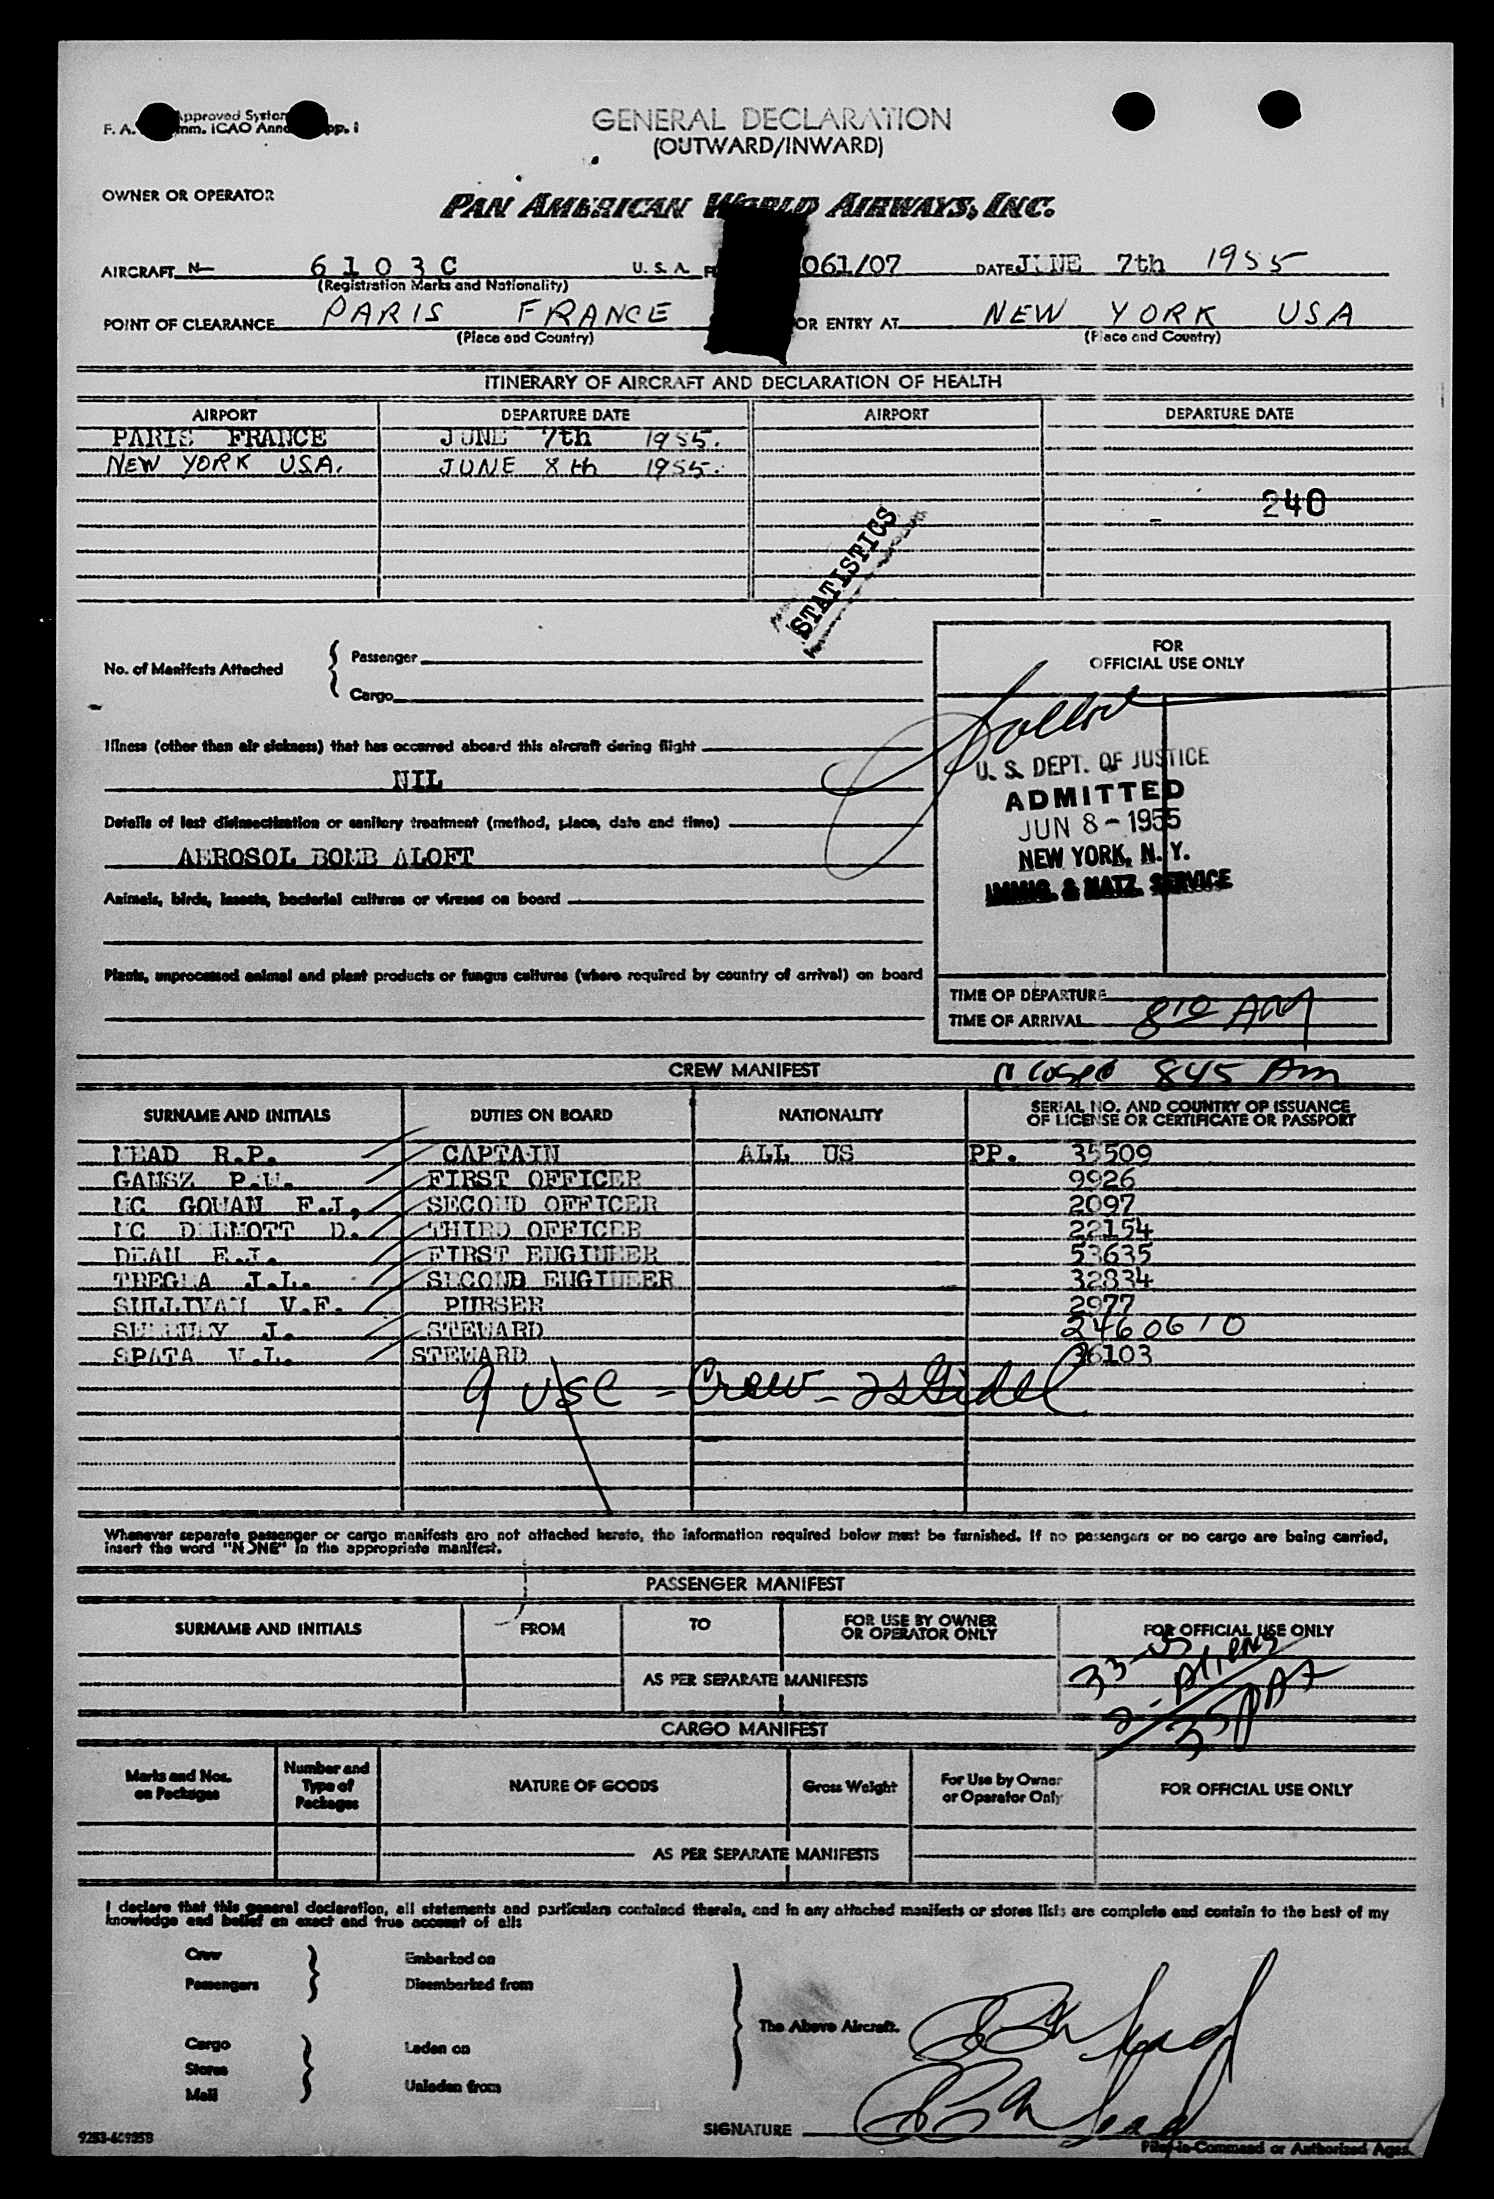 GENERAL DECLARATION
(OUTWARD/INWARD)
Approved System
F. A. mm. ICAO Anne pp. 1
OWNER OR OPERATOR
PAN AMERICAN WORLD AIRWAYS, INC.
AIRCRAFT N— 6103C U. S. A. 061/07 DATE JUNE 7th 1955
(Registration Marks and Nationality)
POINT OF CLEARANCE PARIS FRANCE OR ENTRY AT NEW YORK USA
(Place and Country) (Place and Country)
ITINERARY OF AIRCRAFT AND DECLARATION OF HEALTH
AIRPORT DEPARTURE DATE AIRPORT DEPARTURE DATE
PARIS FRANCE JUNE 7th 1955.
NEW YORK USA. JUNE 8th 1955.
240
STATISTICS
No. of Manifests Attached
Passenger
Cargo
FOR
OFFICIAL USE ONLY
Illness (other than air sickness) that has occurred aboard this aircraft during flight
NIL
Details of last disinsectization or sanitary treatment (method, place, date and time)
AEROSOL BOMB ALOFT
Animals, birds, insects, bacterial cultures or viruses on board
Plants, unprocessed animal and plant products or fungus cultures (where required by country of arrival) on board
U. S. DEPT. OF JUSTICE
ADMITTED
JUN 8 - 1955
NEW YORK, N. Y.
IMMIG. & NATZ. SERVICE
TIME OF DEPARTURE
TIME OF ARRIVAL 8 10 AM
845 Am
CREW MANIFEST
SURNAME AND INITIALS DUTIES ON BOARD NATIONALITY SERIAL NO. AND COUNTRY OF ISSUANCE
OF LICENSE OR CERTIFICATE OR PASSPORT
MEAD R.P. CAPTAIN ALL US PP. 35509
GANSZ P.W. FIRST OFFICER 9926
MC GOWAN F.J. SECOND OFFICER 2097
MC D. THIRD OFFICER 22154
DEAN E.J. FIRST ENGINEER 53635
J.L. SECOND ENGINEER 32834
SULLIVAN V.F. PURSER 2977
J. STEWARD 2460610
SPATA V.L. STEWARD 36103
9 USC - Crew -
Whenever separate passenger or cargo manifests are not attached hereto, the information required below must be furnished. If no passengers or no cargo are being carried,
insert the word "NONE" in the appropriate manifest.
PASSENGER MANIFEST
SURNAME AND INITIALS FROM TO FOR USE BY OWNER
OR OPERATOR ONLY FOR OFFICIAL USE ONLY
33 - US
2 - Aliens
35 PAX
AS PER SEPARATE MANIFESTS
CARGO MANIFEST
Marks and Nos.
on Packages Number and
Type of
Packages NATURE OF GOODS Gross Weight For Use by Owner
or Operator Only FOR OFFICIAL USE ONLY
AS PER SEPARATE MANIFESTS
I declare that this general declaration, all statements and particulars contained therein, and in any attached manifests or stores lists are complete and contain to the best of my
knowledge and belief an exact and true account of all:
Crew Embarked on
Passengers Disembarked from
The Above Aircraft.
Cargo Laden on
Stores
Mail Unladen from
SIGNATURE
Pilot-in-Command or Authorized Agent